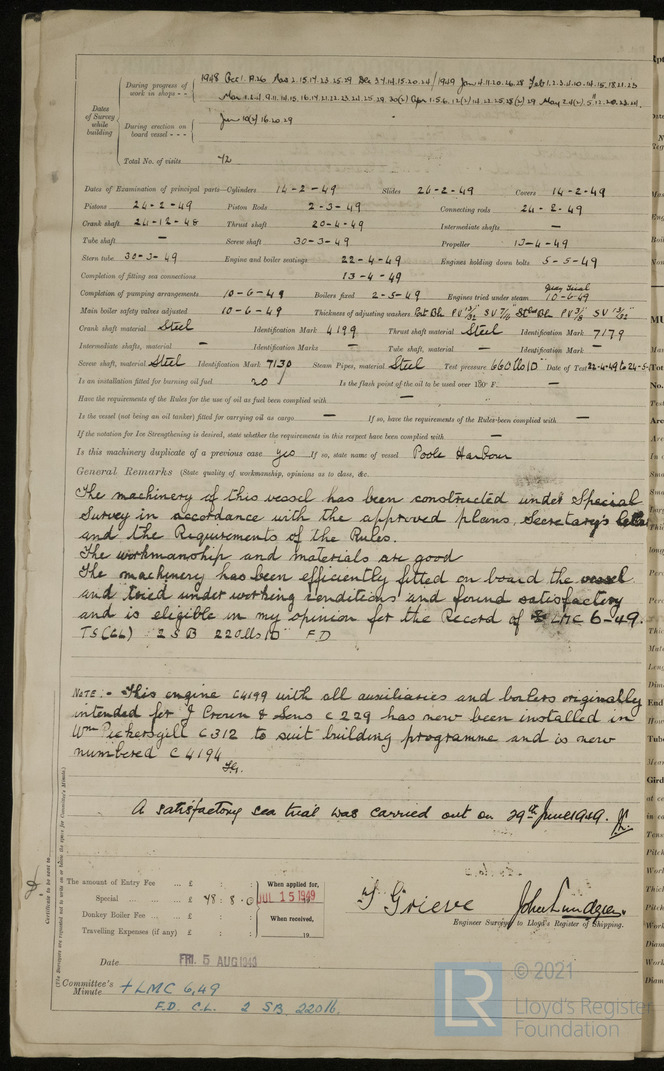 Dates of Survey while building
During progress of work in shops - - 1948 Oct 1. Nov 2.15.17.23.25.29 Dec 3.7.14.15.20.24 / 1949 Jan 4.11.20.26.28 Feb 1.2.3.4.10.14.15.18.21.23
Mar 1.2.4.9.11.14.15.16.17.21.22.23.24.25.29.30(2) Apr 1.5.6.12(2).14.22.25.28(2) 29 May 2.4(2).5.12.20.23.24.
During erection on board vessel - - - Jun 10(2) 16.20.29
Total No. of visits 72
Dates of Examination of principal parts—Cylinders 14-2-49 Slides 26-2-49 Covers 14-2-49
Pistons 24-2-49 Piston Rods 2-3-49 Connecting rods 24-2-49
Crank shaft 24-12-48 Thrust shaft 20-4-49 Intermediate shafts —
Tube shaft — Screw shaft 30-3-49 Propeller 13-4-49
Stern tube 30-3-49 Engine and boiler seatings 22-4-49 Engines holding down bolts 5-5-49
Completion of fitting sea connections 13-4-49
Completion of pumping arrangements 10-6-49 Boilers fixed 2-5-49 Engines tried under steam Quay Trial 10-6-49
Main boiler safety valves adjusted 10-6-49 Thickness of adjusting washers Port Blr PV 13/32 SV 7/16 Stbd Blr PV 3/8 SV 13/32"
Crank shaft material Steel Identification Mark 4199 Thrust shaft material Steel Identification Mark 7179
Intermediate shafts, material — Identification Marks — Tube shaft, material — Identification Mark —
Screw shaft, material Steel Identification Mark 7130 Steam Pipes, material Steel Test pressure 660 lbs □" Date of Test 22-4-49 to 24-5-
Is an installation fitted for burning oil fuel no Is the flash point of the oil to be used over 150° F. —
Have the requirements of the Rules for the use of oil as fuel been complied with —
Is the vessel (not being an oil tanker) fitted for carrying oil as cargo — If so, have the requirements of the Rules been complied with —
If the notation for Ice Strengthening is desired, state whether the requirements in this respect have been complied with —
Is this machinery duplicate of a previous case yes If so, state name of vessel Poole Harbour
General Remarks (State quality of workmanship, opinions as to class, &c.
The machinery of this vessel has been constructed under Special
Survey in accordance with the approved plans, Secretary's letter
and the Requirements of the Rules.
The workmanship and materials are good
The machinery has been efficiently fitted on board the vessel
and tried under working conditions and found satisfactory
and is eligible in my opinion for the Record of LMC 6-49.
TS(CL) 2 SB 220 lbs □" FD
NOTE:- This engine C4199 with all auxiliaries and boilers originally
intended for J Crown & Sons C 229 has now been installed in
Wm Pickersgill C312 to suit building programme and is now
numbered C 4194
A satisfactory sea trial was carried out on 29th June 1949.
Certificate to be sent to
(The Surveyors are requested not to write on or below the space for Committee's Minute.)
The amount of Entry Fee ... £ : :
Special ... ... £ 48 : 8 : 0
Donkey Boiler Fee ... £ : :
Travelling Expenses (if any) £ : :
When applied for,
JUL 15 1949
When received,
19
T Grieve John Lundgren.
Engineer Surveyor to Lloyd's Register of Shipping.
Date FRI. 5 AUG 1949
Committee's Minute + LMC 6,49
F.D. C.L. 2 SB 220 lb.
LR
© 2021
Lloyd's Register
Foundation